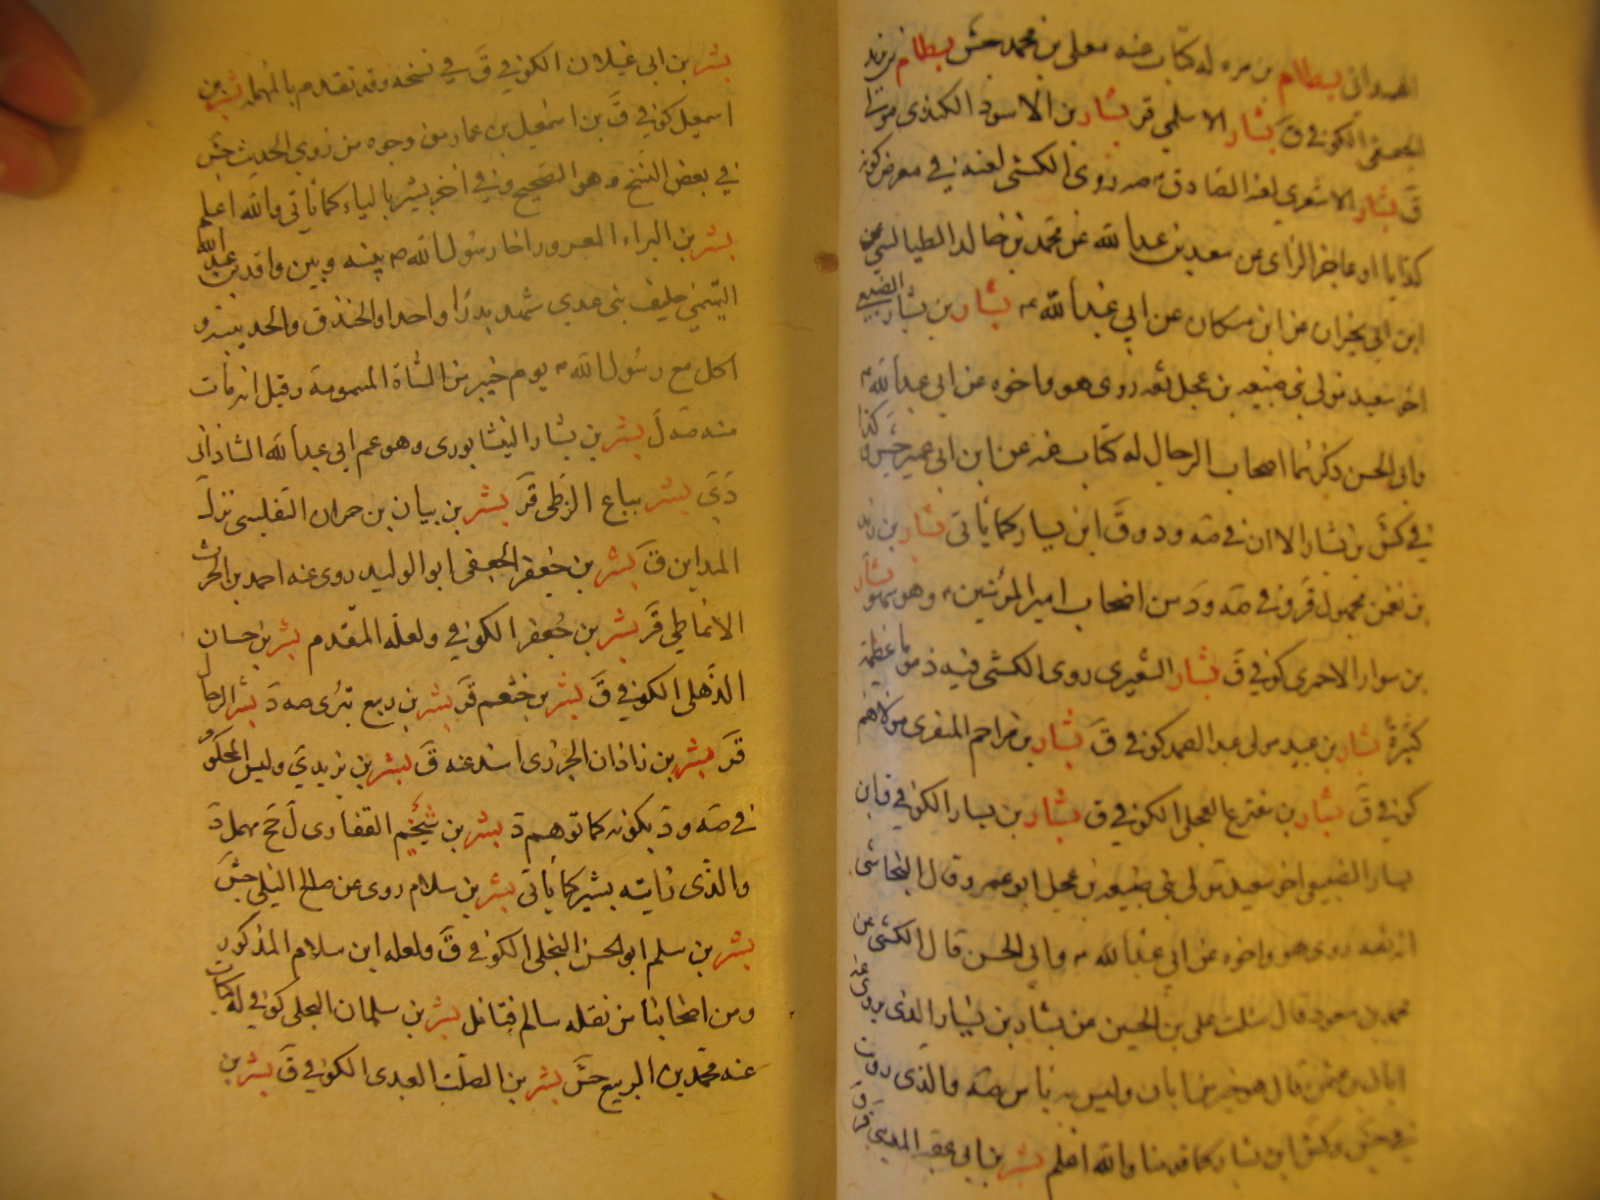 بسطام بن مره له كتاب عنه معلى بن محمد جش بسطام بن يزيد
الجعفى الكوفي ق بشار الاسلمي قر بشار بن الاسود الكندى مولى
ق بشار الاشعري لعنه الصادق ع صه روى الكشى لعنه في معرض كونه
كذابا سعد بن عبد الله عن محمد بن خالد الطيالسي عن
ابن ابي نجران عن ابن مسكان عن ابي عبد الله ع بشار بن بشار الضبيعي
اخو سعيد مولى بني ضبيعه بن عجل ثقه روى هو واخوه عن ابي عبد الله ع
وابي الحسن ذكرهما اصحاب الرجال له كتاب عنه عن ابن ابي عمير جش وكذا
في كش بن بشار الا ان في صه ود وق ابن يسار كما ياتى بشار بن زيد
بن نعمن مجهول قر وفي صه ود من اصحاب امير المؤمنين ع وهو سهو بشار
بن سوار الاحمرى كوفي ق بشار الشعيرى روى الكشى فيه ذموما عظيمة
كثيرة بشار بن عبيد مولى عبد الصمد كوفي ق بشار بن مزاحم المنقرى مولاهم
كوفي ق بشار بن مقترع العجلى الكوفي ق بشار بن يسار الكوفي ق ابن
يسار الضبيعى اخو سعيد مولى بني ضبيعه بن عجل ابو عمرو قال النجاشى
انه ثقه روى هو واخوه عن ابي عبد الله ع وابي الحسن قال الكشى عن
محمد بن مسعود قال سئلت على بن الحسين عن بشار بن يسار الذى يروى عنه
ابان بن عثمن قال هو خير من ابان وليس به باس صه والذى رويت
في جش وكش ابن بشار كما قدمنا والله اعلم بشر بن ابي عقبه المديني قر و
بشر بن ابى غيلان الكوفي ق في نسخه وقد تقدم بالمهمله بشر بن
اسمعيل كوفي ق بن اسمعيل بن عمار من وجوه من روى الحديث جش
في بعض النسخ وهو الصحيح وفي اخر بشير بالياء كما ياتى والله اعلم
بشر بن البراء المعرور اخا رسول الله ص بينه وبين واقد بن عبد الله
التميمي حليف بنى عدي شهد بدرا واحدا والخندق والحديبيه و
اكل مع رسول الله ص يوم خيبر من الشاة المسمومة وقيل انه مات
منه صه ل بشر بن بشار النيشابورى وهو عم ابى عبد الله الشاذانى
دى بشر بياع الزطى قر بشر بن بيان بن حمران التفليسى نزل
المداين ق بشر بن جعفر الجعفى ابو الوليد روى عنه احمد بن الحرث
الانماطي قر بشر بن جعفر الكوفي ولعله المقدم بشر بن حسان
الذهلى الكوفي ق بشر بن خثعم قر بشر بن ربيع بترى صه د بشر الرحال
قر بشر بن زاذان الجزرى اسند عنه ق بشر بن يزيد ى وليس المحكوم
في صه ود بكونه كما توهم د بشر بن شحيم الغفارى ل جخ مهمل د
والذى رايته بشير كما ياتى بشر بن سلام روى عن صالح النيلى جش
بشر بن سلم ابو الحسن البجلى الكوفي ق ولعله ابن سلام المذكور
ومن اصحابنا من نقله سالم فتامل بشر بن سلمان البجلى كوفي له كتاب
عنه محمد بن الربيع جش بشر بن الصلت العبدى الكوفي ق بشر بن